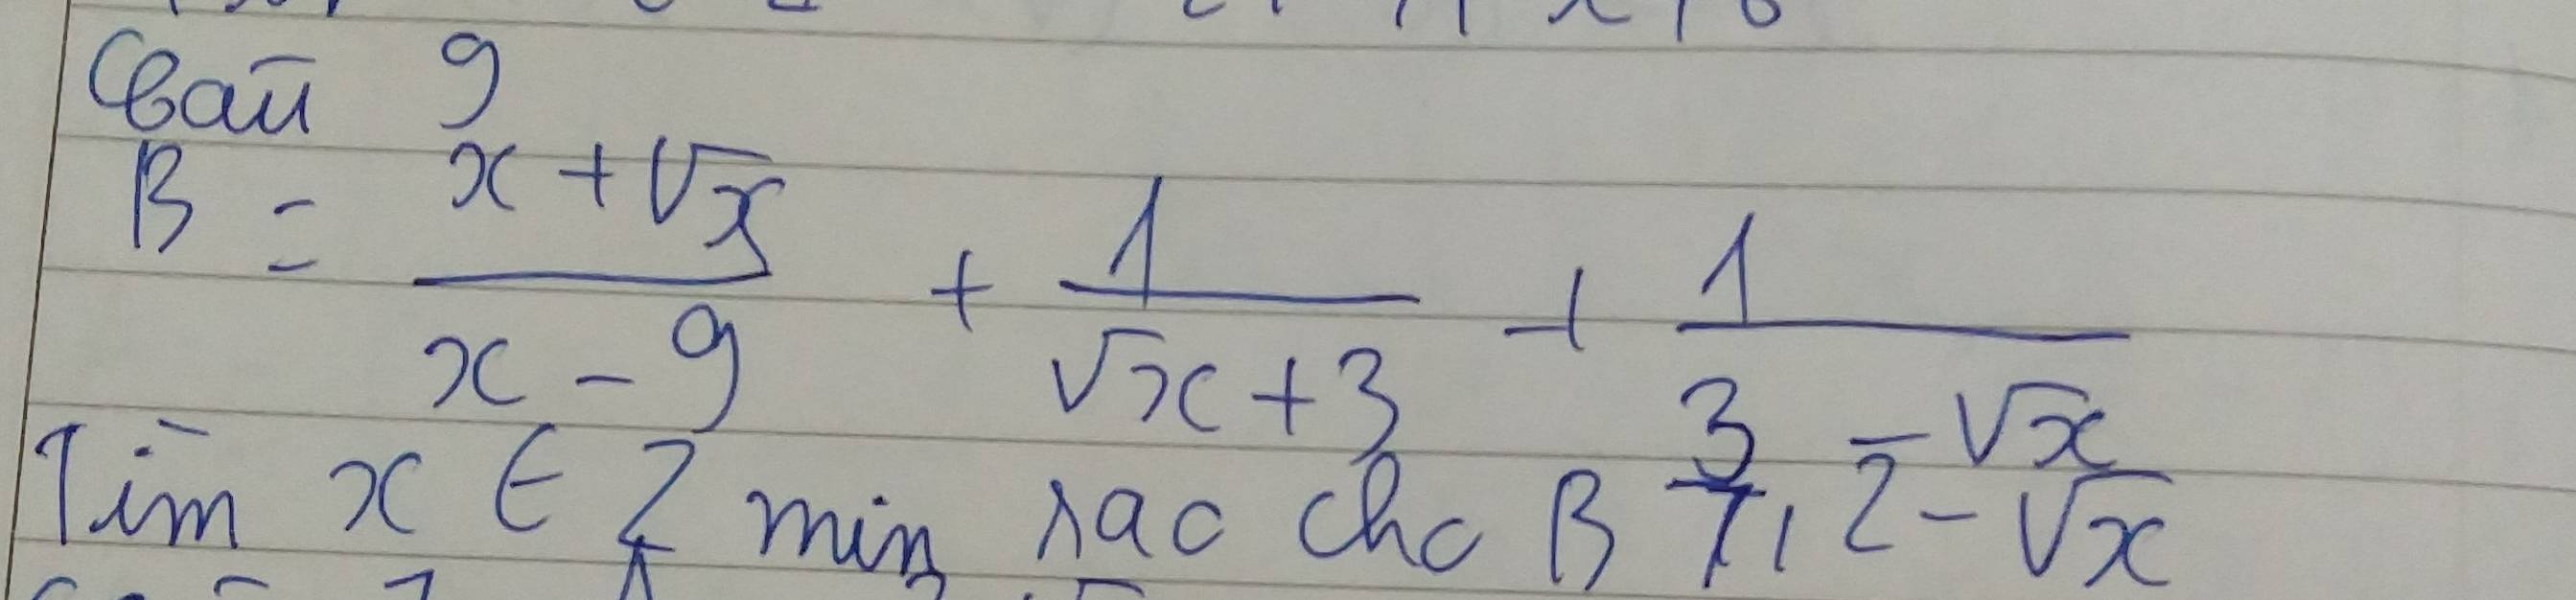 Bài 9
B = \frac{x + \sqrt{x}}{x - 9} + \frac{1}{\sqrt{x} + 3} + \frac{1}{3 - \sqrt{x}}
Tìm x ∈ Z min sao cho B ⩾ 2 - \sqrt{x}